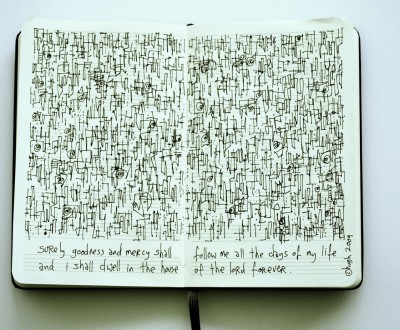 surely goodness and mercy shall follow me all the days of my life
and i shall dwell in the house of the lord forever.